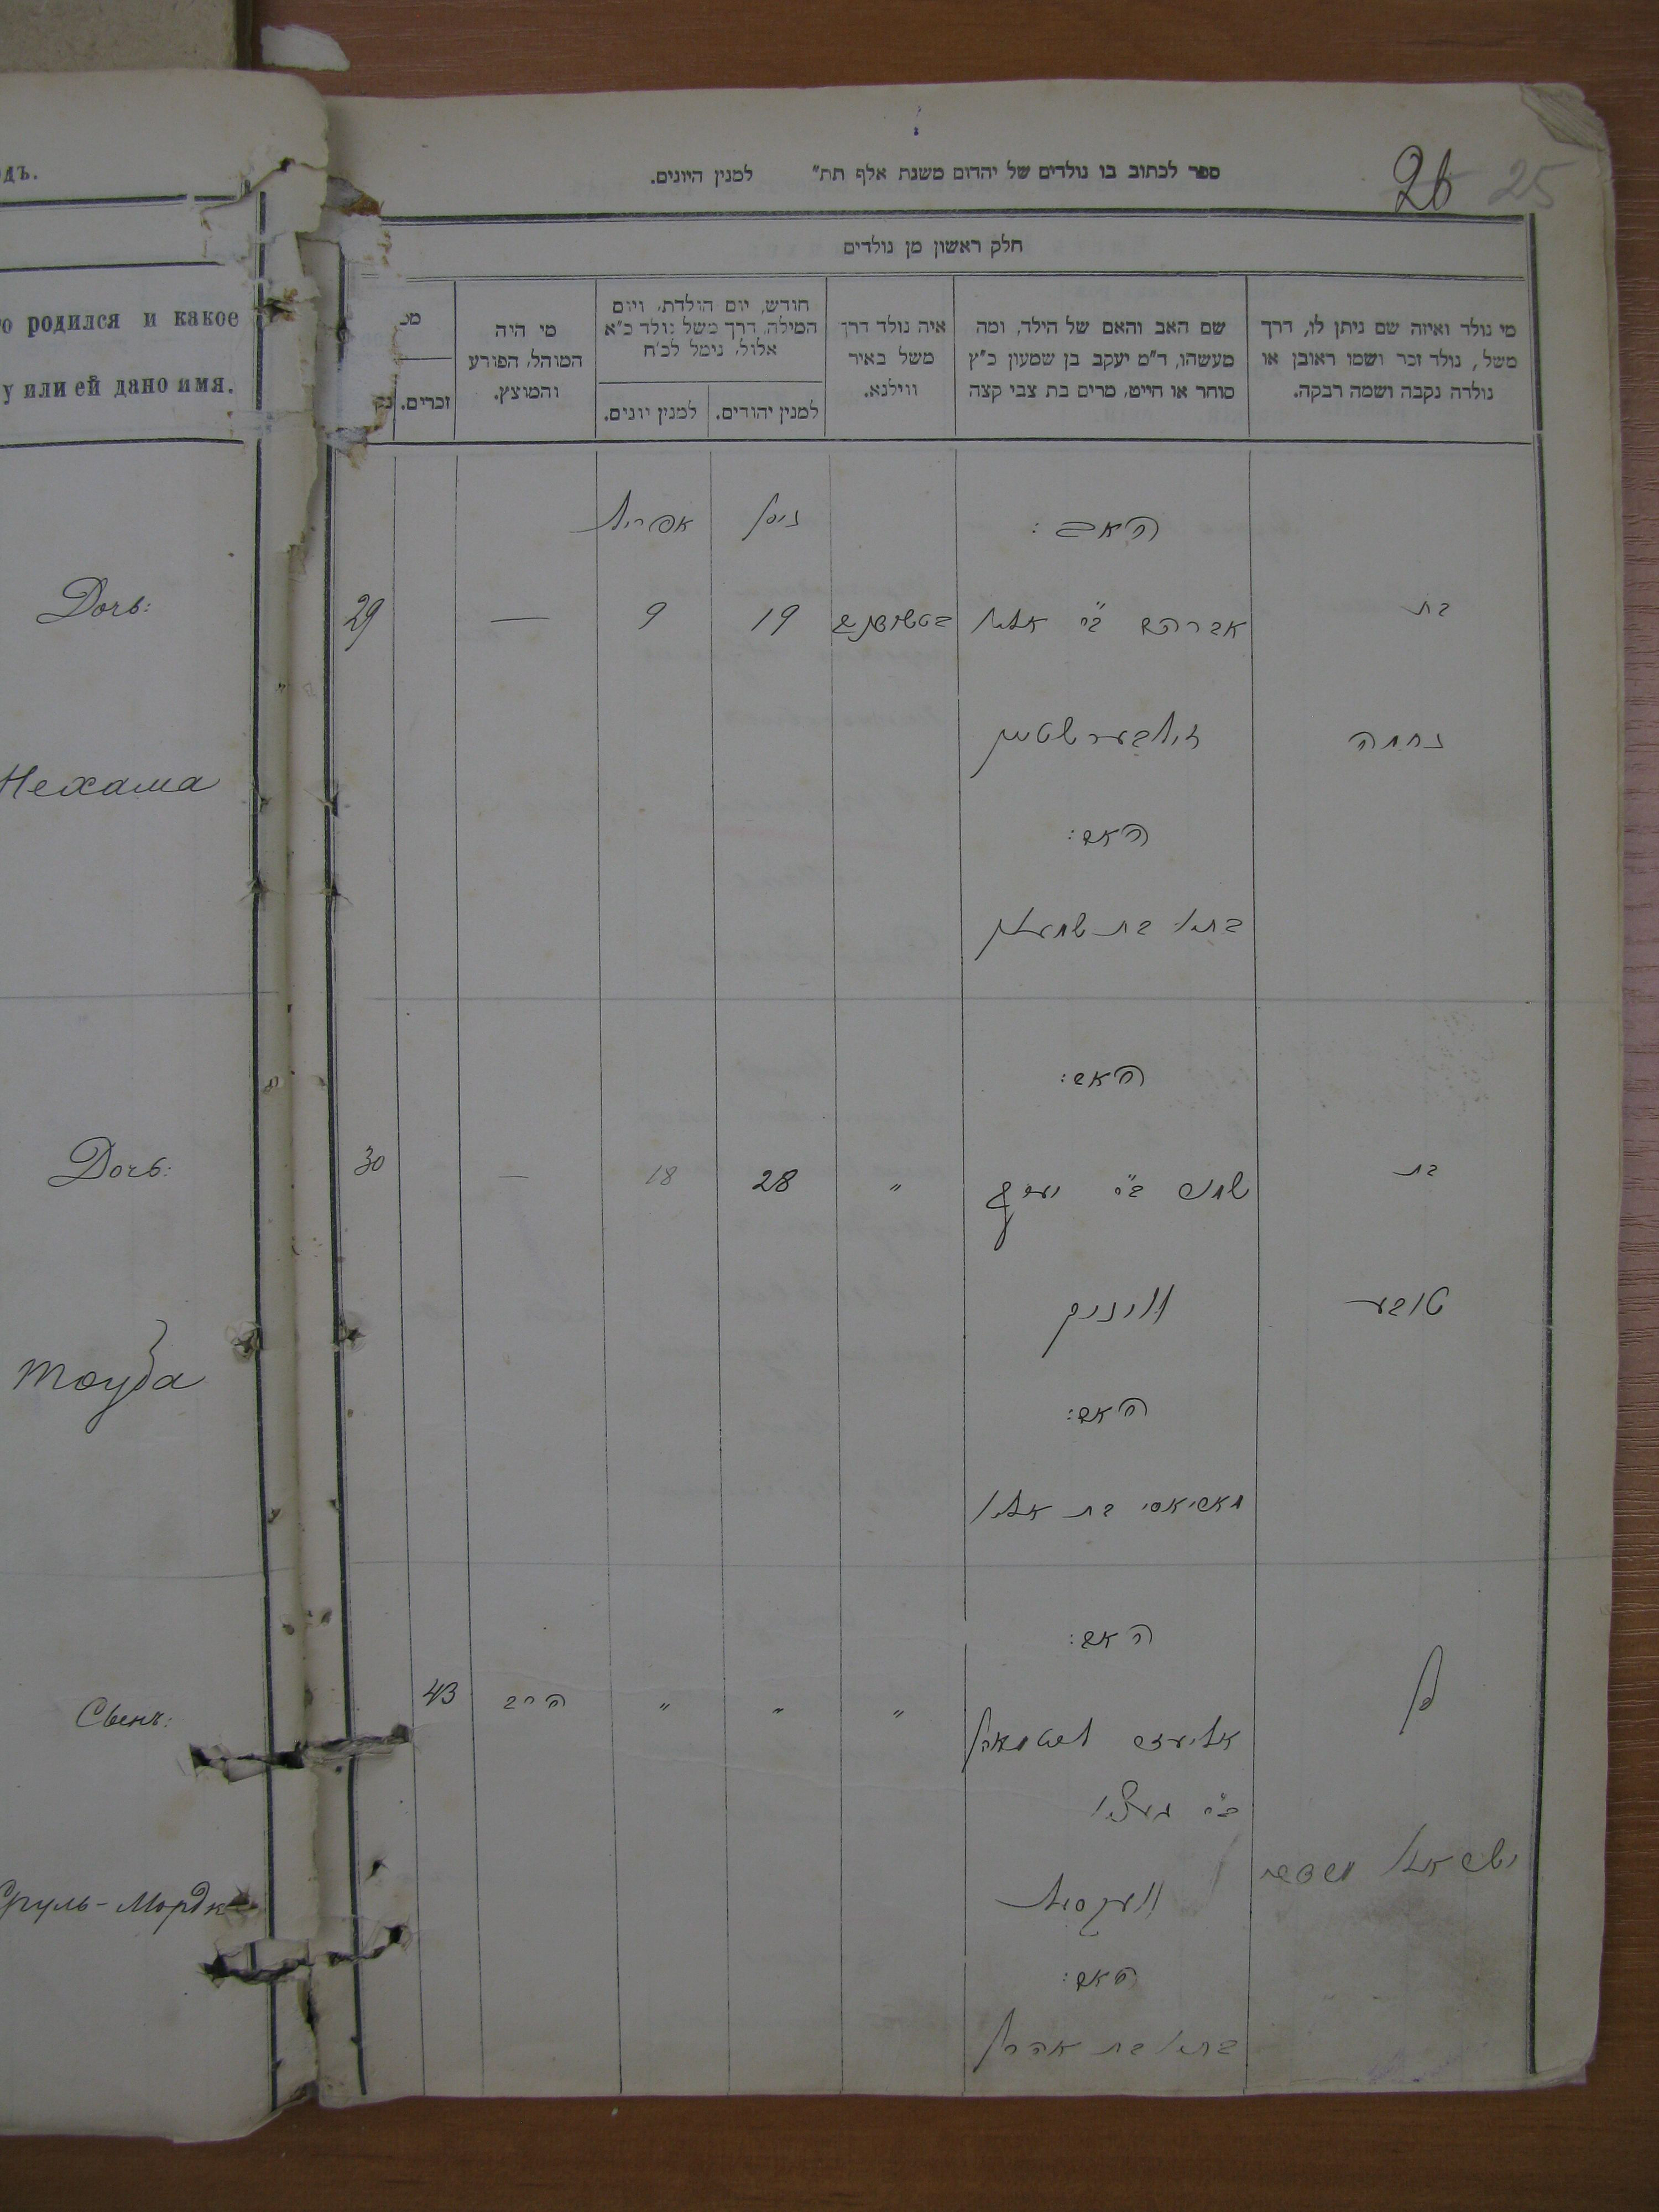 дъ.
о родился и какое
у или ей дано имя.
Дочь:
Нехама
Дочь:
Тауба
Сынъ:
Сруль-Мордк
26 25
ספר לכתוב בו נולדים של יהדום משנת אלף תת״ למנין היונים.
חלק ראשון מן נולדים
מי נולד ואיזה שם ניתן לו, דרך
משל, נולד זכר ושמו ראובן או
נולדה נקבה ושמה רבקה.
שם האב והאם של הילד, ומה
מעשהו, ד״מ יעקב בן שמעון כ״ץ
סוחר או חייט, מרים בת צבי קצה
איה נולד דרך
משל באיר
ווילנא.
חודש, יום הולדת, ויום
המילה, דרך משל נולד כ״א
אלול, נימל לכ״ח
למנין יהודים.
למנין יונים.
מי היה
המוהל, הפורע
והמוצץ.
זכרים.
ניסן
אפריל
האב:
בת
אברהם ב״ר
19
9
—
29
נחמה
זילבערשטיין
האם:
בת שמעון
האב:
בת
ב״ר יוסף
״
28
18
—
30
טובע
האם:
בת
האב:
בן
אליעזר
״
״
״
הרב
43
ב״ר
ישראל מרדכי
האם:
בת אהרן